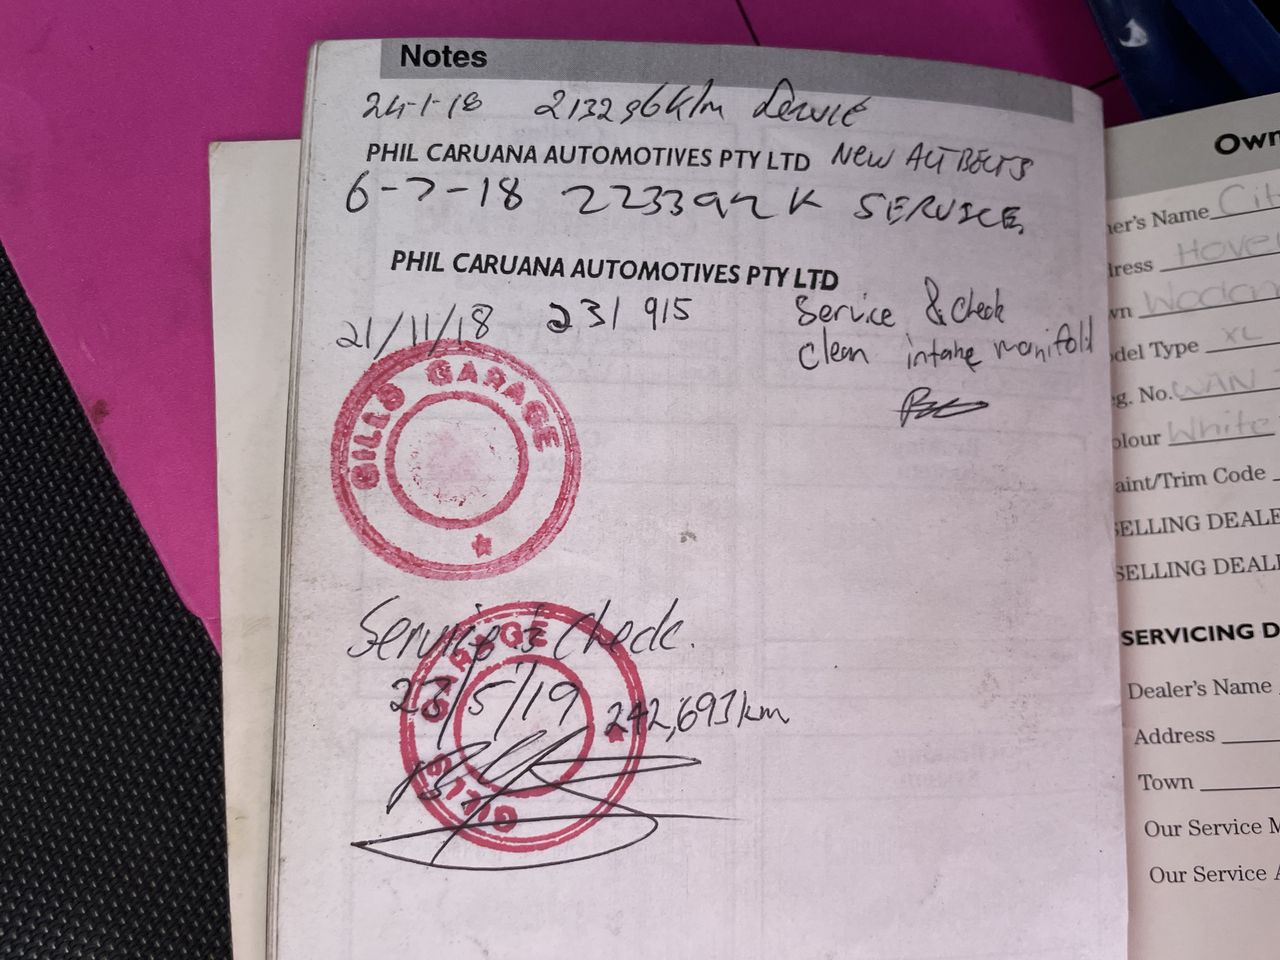 Notes
24-1-18 213296 k/m Service
PHIL CARUANA AUTOMOTIVES PTY LTD NEW ALT BELTS
6-7-18 223392 K SERVICE
PHIL CARUANA AUTOMOTIVES PTY LTD
21/11/18 231 915 Service & Check
Clean intake manifold
GILLS GARAGE
Service & Check.
23/5/19 242,693 km
GILLS GARAGE
Own
er's Name Cit
dress Hove
wn Wodon
del Type XL
g. No. WAN
olour White
aint/Trim Code
SELLING DEALE
SELLING DEALE
SERVICING D
Dealer's Name
Address
Town
Our Service M
Our Service A